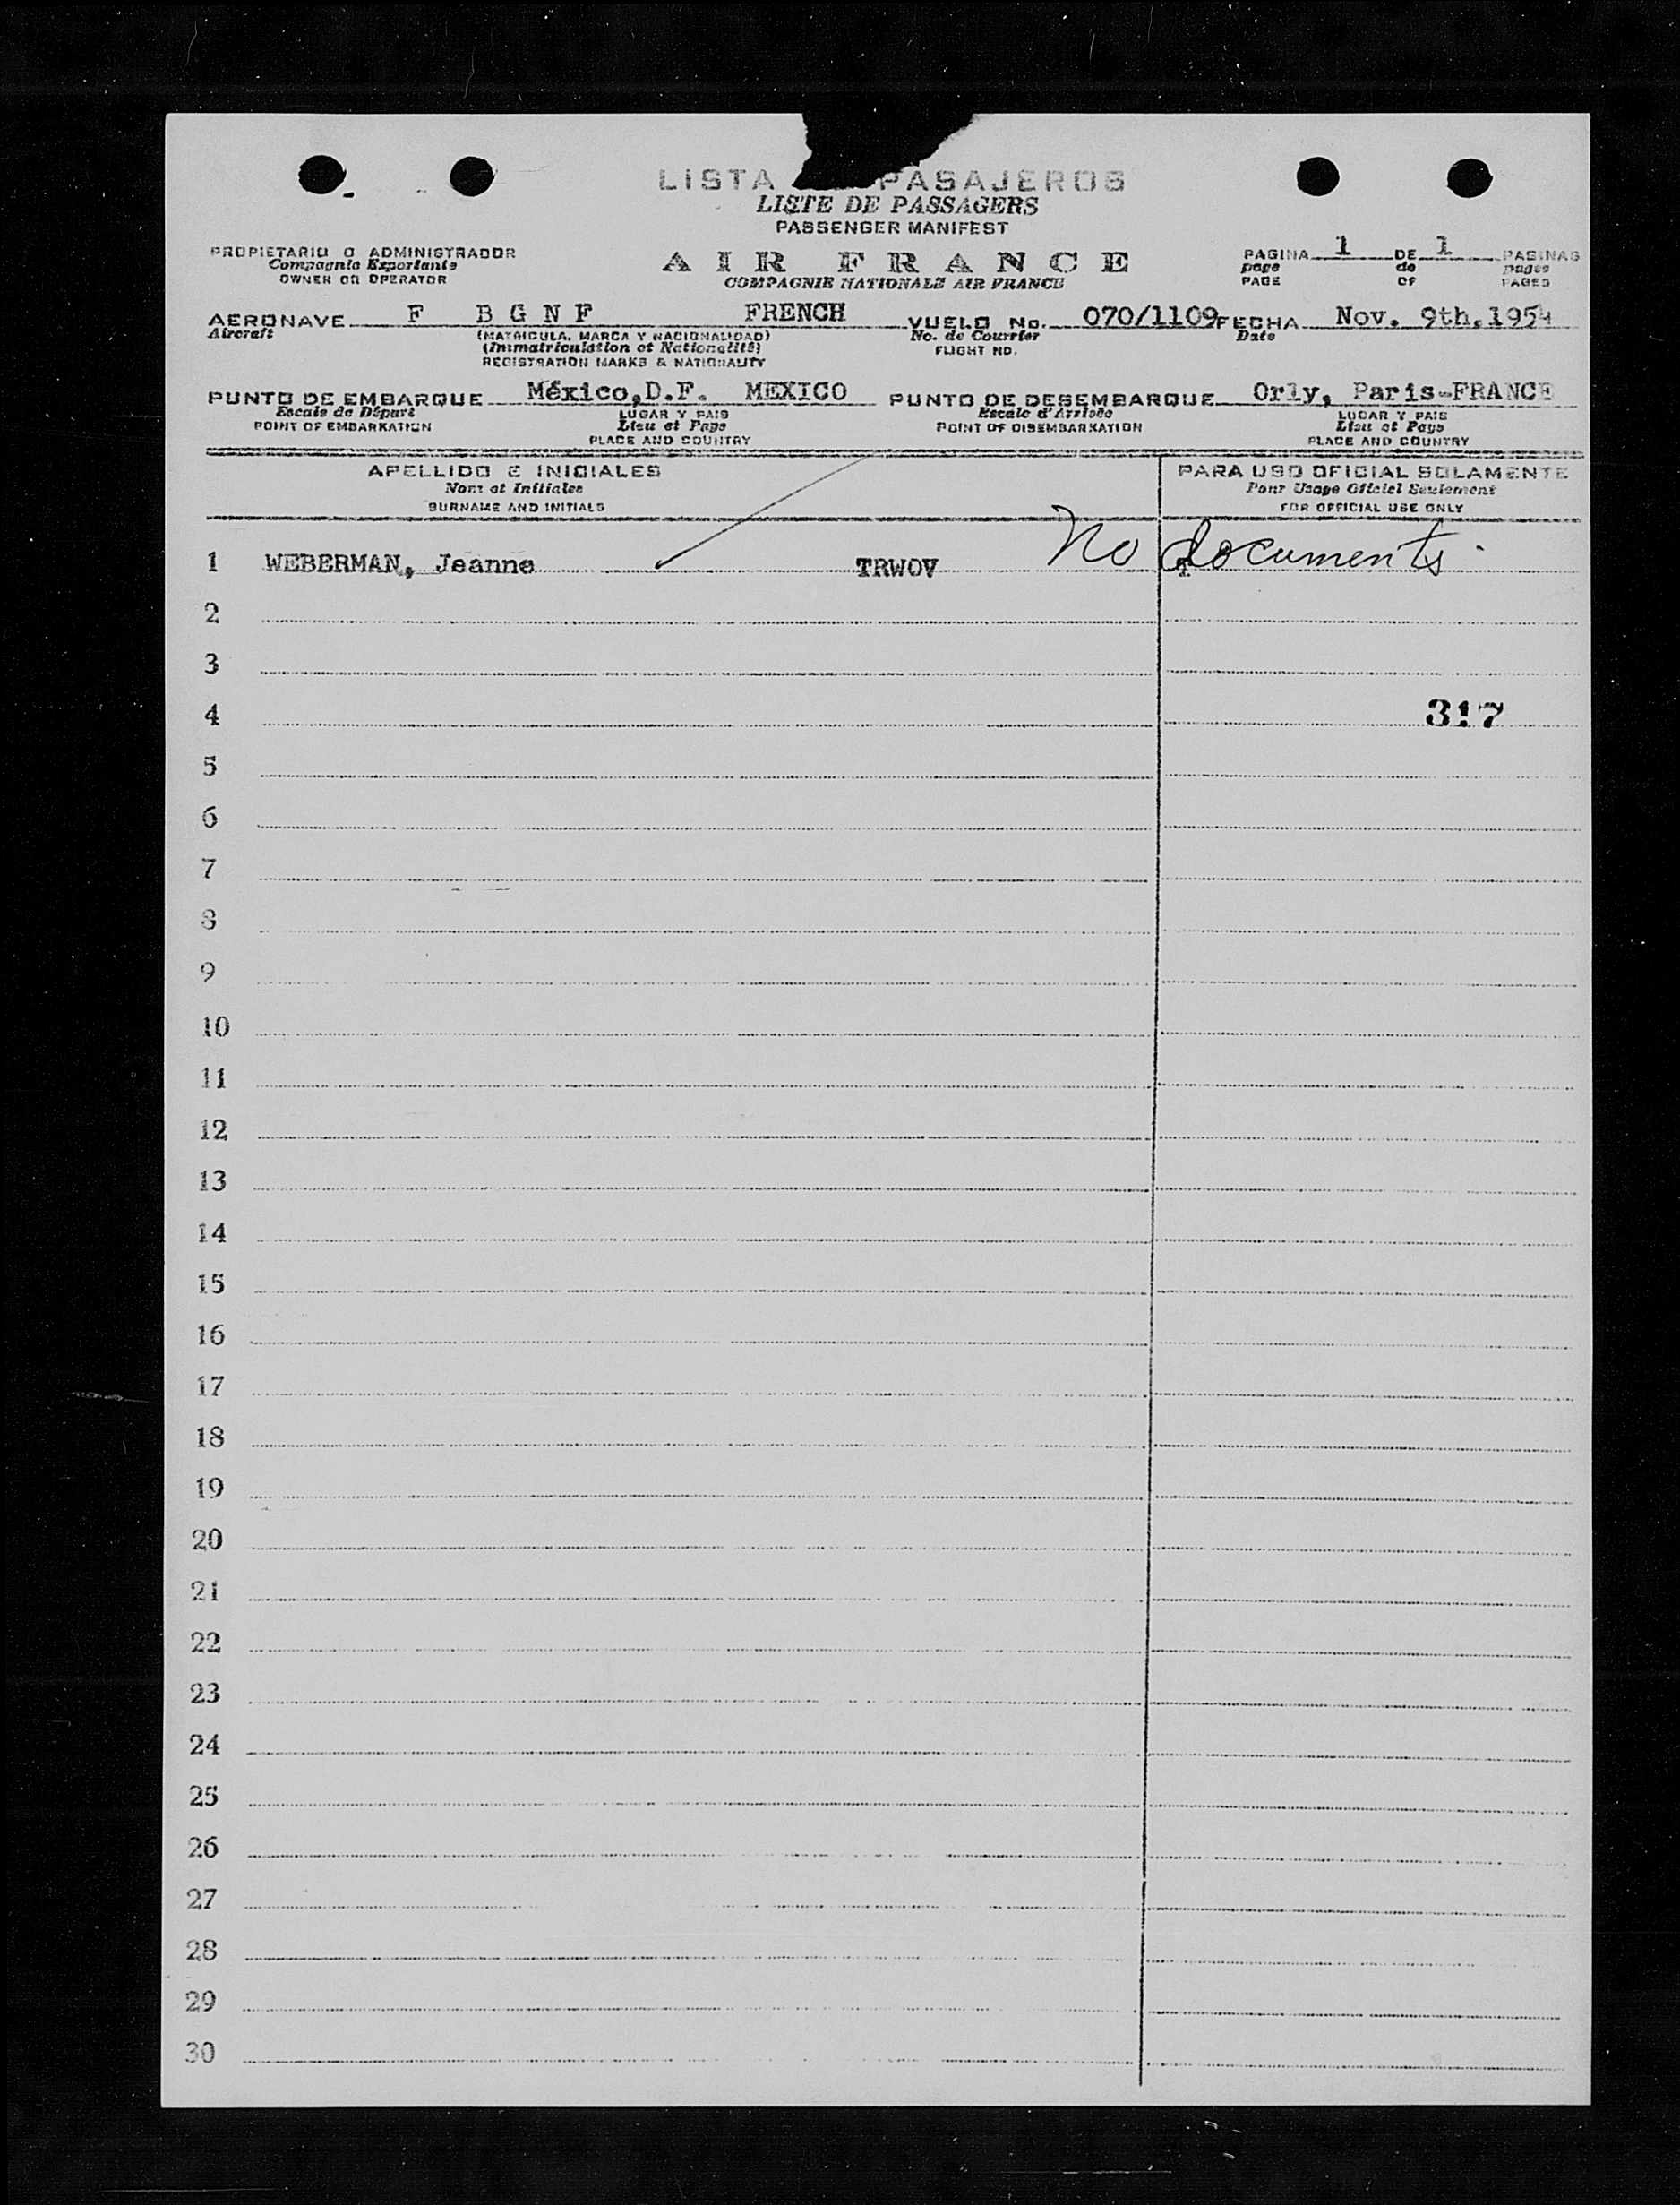 LISTA PASAJEROS
LISTE DE PASSAGERS
PASSENGER MANIFEST
PROPIETARIO O ADMINISTRADOR
Compagnie Exportante
OWNER OR OPERATOR
AIR FRANCE
COMPAGNIE NATIONALE AIR FRANCE
PAGINA 1 DE 1 PAGINAS
page de pages
PAGE OF PAGES
AERONAVE F BGNF FRENCH VUELO No. 070/1109 FECHA Nov. 9th.1954
Aircraft (MATRICULA, MARCA Y NACIONALIDAD) No. de Courrier Date
(Immatriculation et Nationalité) FLIGHT NO.
REGISTRATION MARKS & NATIONALITY
PUNTO DE EMBARQUE México,D.F. MEXICO PUNTO DE DESEMBARQUE Orly, Paris-FRANCE
Escale de Départ LUGAR Y PAIS Escale d'Arrivée LUGAR Y PAIS
POINT OF EMBARKATION Lieu et Pays POINT OF DISEMBARKATION Lieu et Pays
PLACE AND COUNTRY PLACE AND COUNTRY
APELLIDO E INICIALES PARA USO OFICIAL SOLAMENTE
Nom et Initiales Pour Usage Officiel Seulement
SURNAME AND INITIALS FOR OFFICIAL USE ONLY
1 WEBERMAN, Jeanne TRWOV No documents.
2
3
4 317
5
6
7
8
9
10
11
12
13
14
15
16
17
18
19
20
21
22
23
24
25
26
27
28
29
30